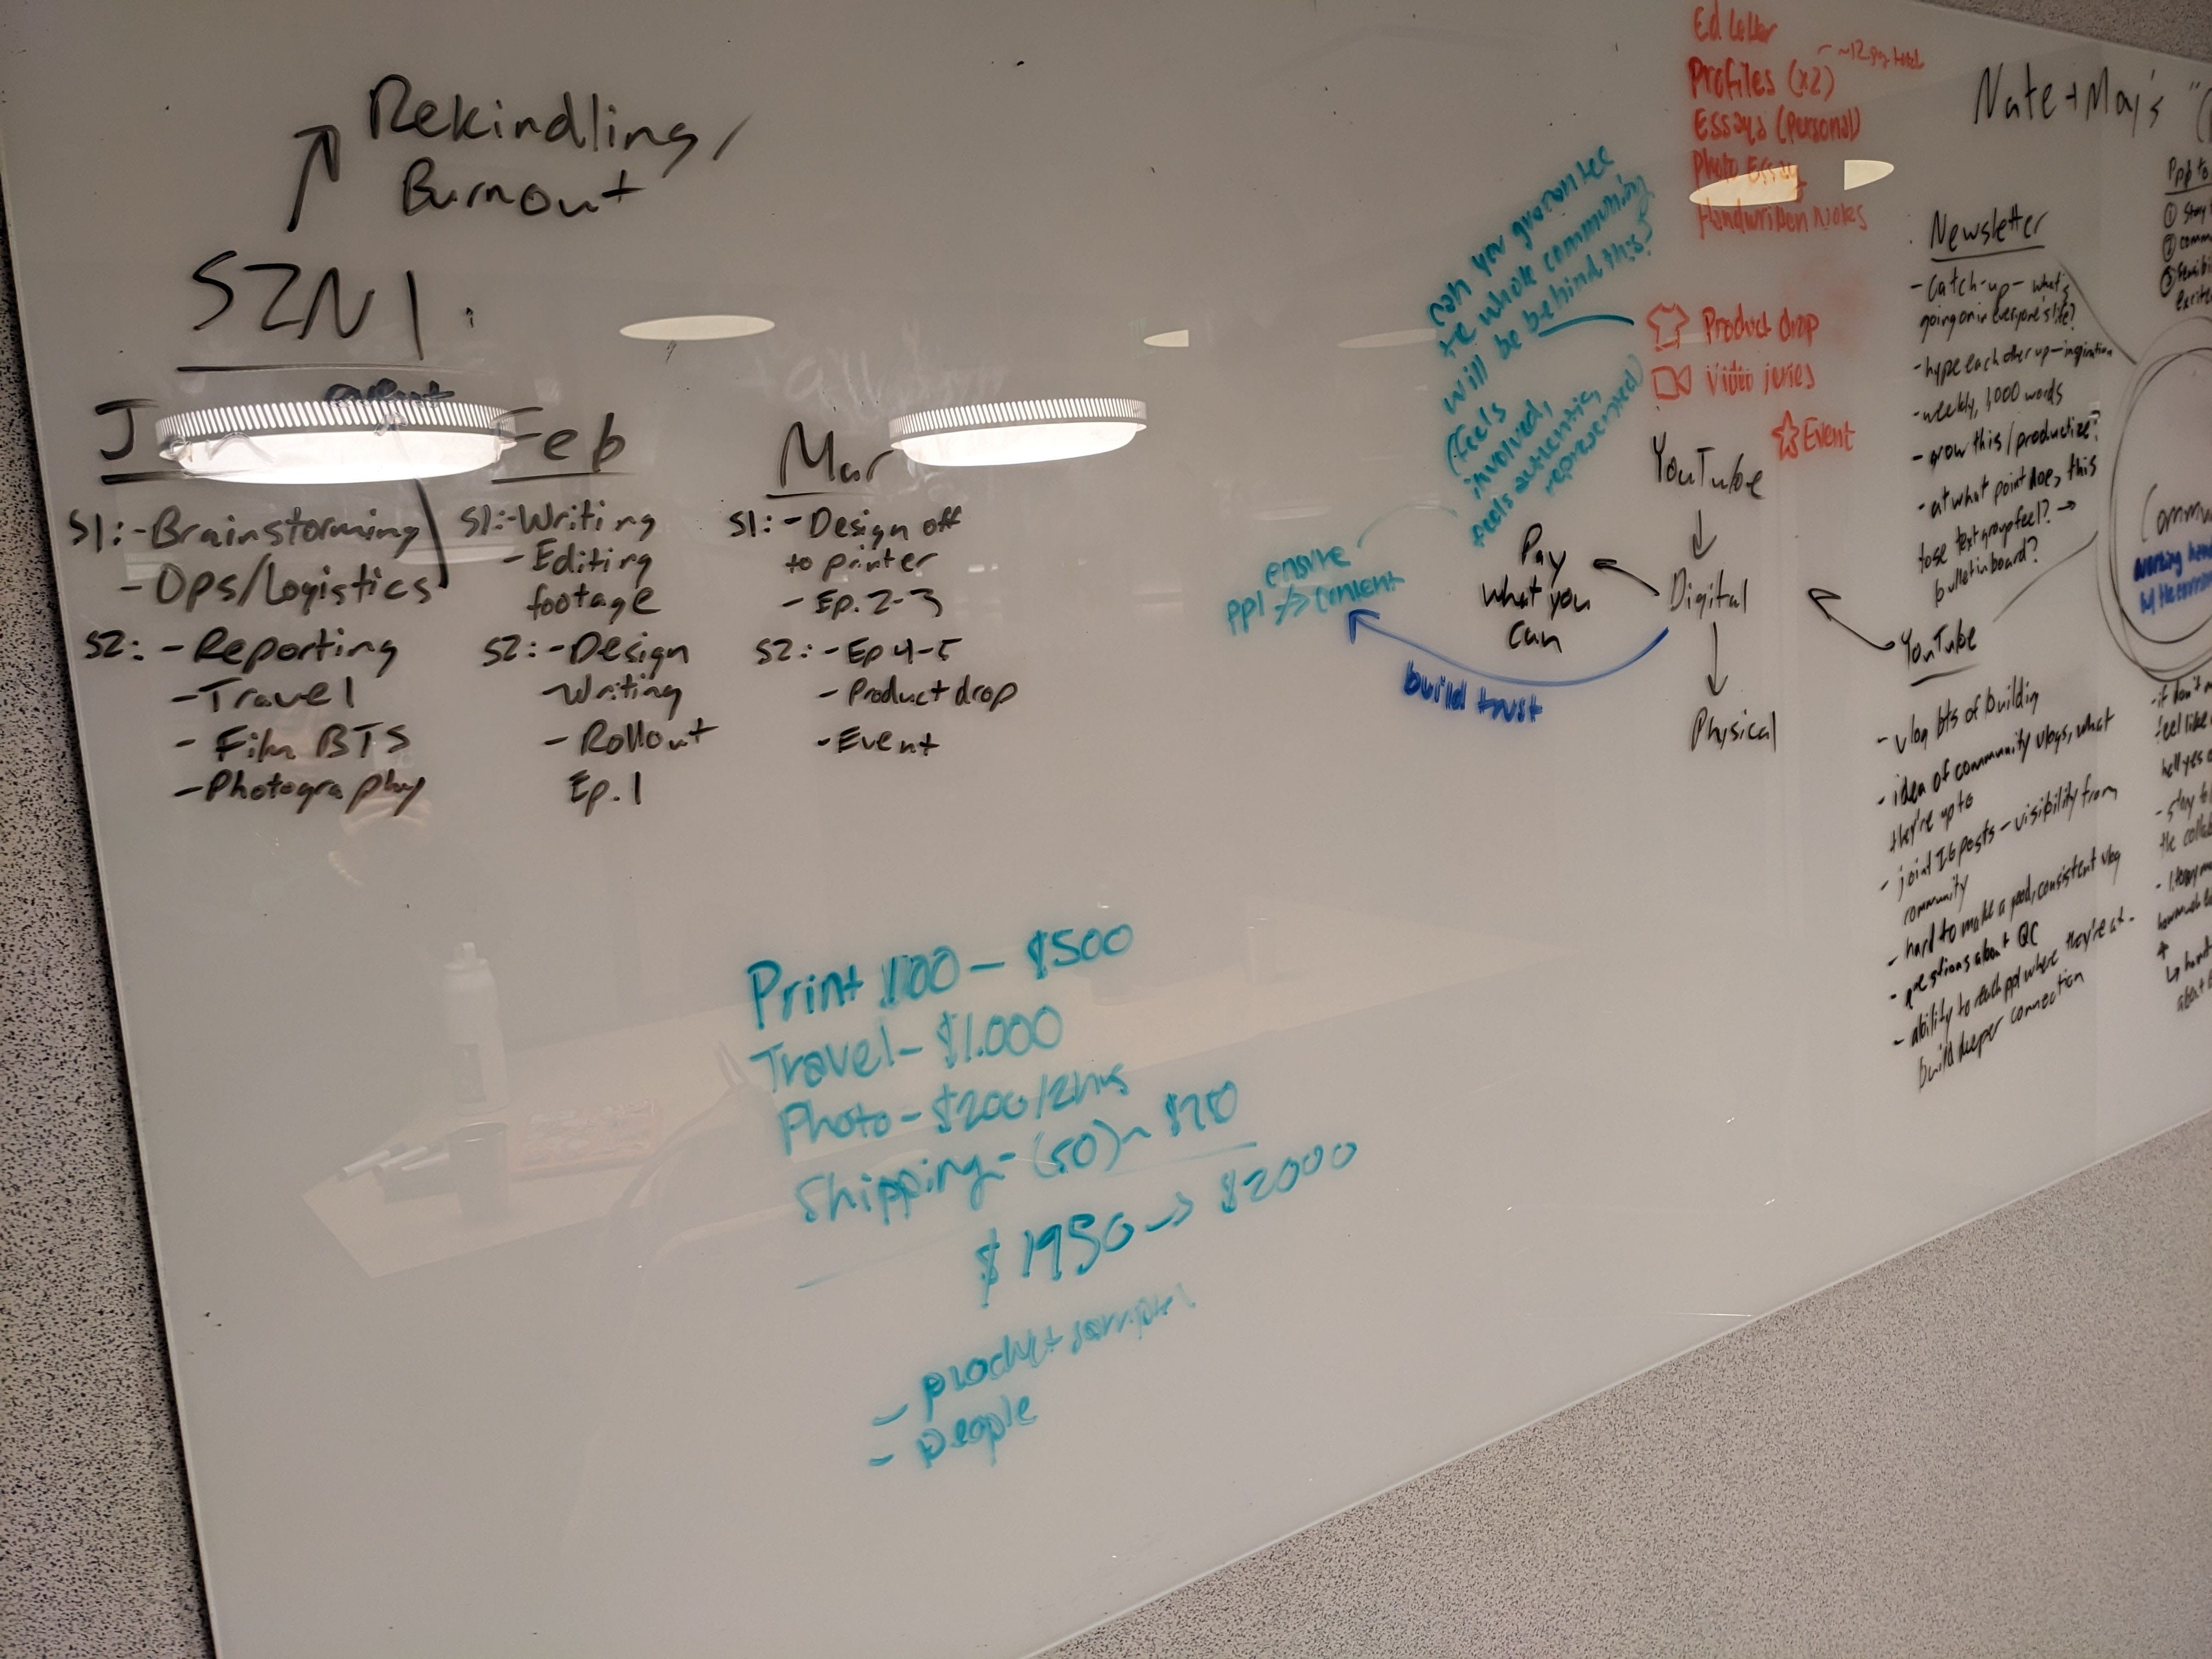 Rekindling/
Burnout
SZN 1:
event
J
S1: - Brainstorming
- Ops/Logistics
S2: - Reporting
- Travel
- Film BTS
- Photography
Feb
S1: - Writing
- Editing
footage
S2: - Design
- Writing
- Rollout
Ep. 1
Mar
S1: - Design off
to printer
- Ep. 2-3
S2: - Ep 4-5
- Product drop
- Event
Print 100 - $500
Travel - $1,000
Photo - $200/2hrs
Shipping - (50) ~
$1950 -> $2000
- product samples
- people
can you guarantee
the whole community
will be behind this?
(feels
involved,
feels authentic,
represented)
ensure
ppl -> content
build trust
Ed Letter
Profiles (x2)
Essays (personal)
Photo Essay
Handwritten Notes
Product drop
Video series
Event
YouTube
Digital
Physical
Pay
what you
can
Nate + May's
Newsletter
- Catch-up - what's
going on in everyone's life?
- hype each other up - inspiration
- weekly, 1,000 words
- grow this/productize?
- at what point does this
lose text group feel? ->
bulletin board?
YouTube
- vlog bts of building
- idea of community vlogs, what
they're up to
- joint IG posts - visibility from
community
- hard to make a good, consistent vlog
- questions about QC
- ability to reach ppl where they're at -
build deeper connection
① Stay
②
③
- if don't
feel like
hell yes
- stay
the